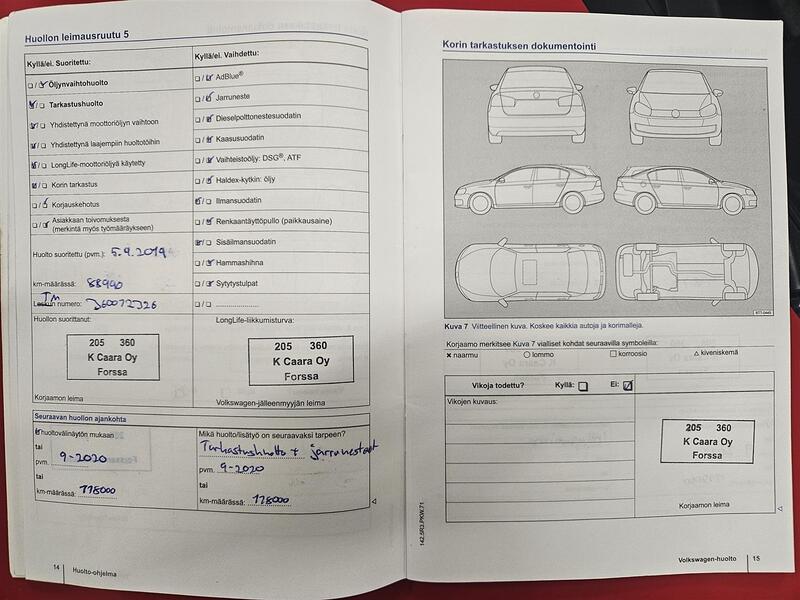 Huollon leimausruutu 5
Kyllä/ei. Suoritettu:
Öljynvaihtohuolto
Tarkastushuolto
Yhdistettynä moottoriöljyn vaihtoon
Yhdistettynä laajempiin huoltotöihin
LongLife-moottoriöljyä käytetty
Korin tarkastus
Korjauskehotus
Asiakkaan toivomuksesta
(merkintä myös työmääräykseen)
Huolto suoritettu (pvm.): 5.9.2019
km-määrässä: 88990
TM
Laskun numero:
Huollon suorittanut:
205 360
K Caara Oy
Forssa
Korjaamon leima
Kyllä/ei. Vaihdettu:
AdBlue®
Jarruneste
Dieselpolttonestesuodatin
Kaasusuodatin
Vaihteistoöljy: DSG®, ATF
Haldex-kytkin: öljy
Ilmansuodatin
Renkaantäyttöpullo (paikkausaine)
Sisäilmansuodatin
Hammashihna
Sytytystulpat
LongLife-liikkumisturva:
205 360
K Caara Oy
Forssa
Volkswagen-jälleenmyyjän leima
Seuraavan huollon ajankohta
Huoltovälinäytön mukaan
tai
pvm. 9-2020
tai
km-määrässä: 118000
Mikä huolto/lisätyö on seuraavaksi tarpeen?
Tarkastushuolto + jarrunesteet
pvm. 9-2020
tai
km-määrässä: 118000
14 Huolto-ohjelma
Korin tarkastuksen dokumentointi
B7T-0445
Kuva 7 Viitteellinen kuva. Koskee kaikkia autoja ja korimalleja.
Korjaamo merkitsee Kuva 7 vialliset kohdat seuraavilla symboleilla:
× naarmu ○ lommo □ korroosio △ kiveniskemä
Vikoja todettu? Kyllä: Ei:
Vikojen kuvaus:
205 360
K Caara Oy
Forssa
Korjaamon leima
142.5R3.PKW.71
Volkswagen-huolto 15